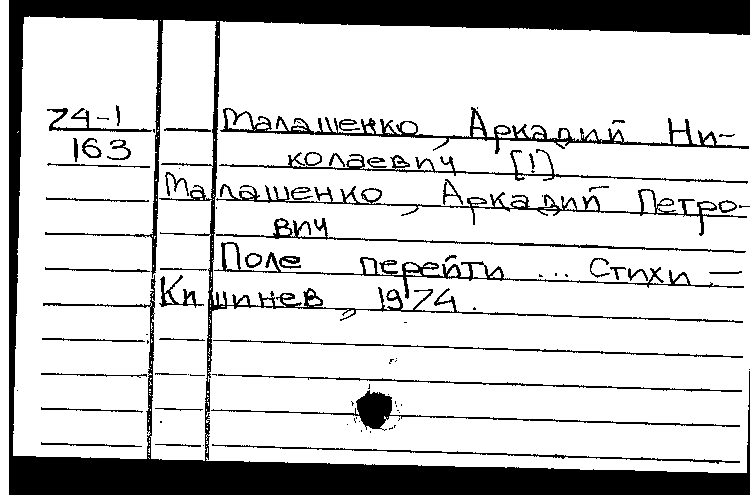 74-1
163
Малашенко, Аркадий Ни-
колаевич [!]
Малашенко, Аркадий Петро-
вич
Поле перейти ... Стихи. —
Кишинев, 1974.